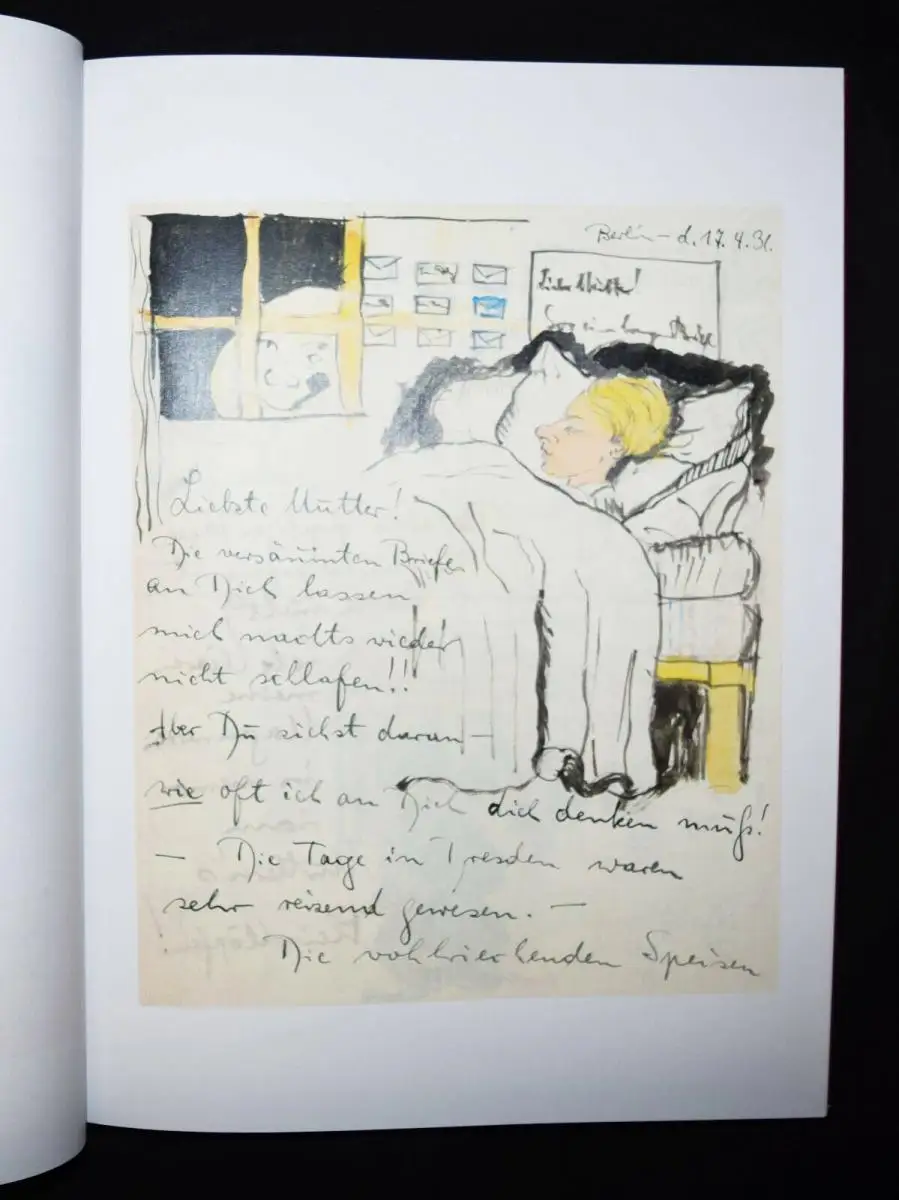 Berlin – d. 17. 4. 31.
Liebe Mutter!
Liebste Mutter!
Die versäumten Briefe
an Dich lassen
mich nachts wieder
nicht schlafen!!
Aber Du siehst daran –
wie oft ich an Dich dich denken muß!
– Die Tage in Dresden waren
sehr reizend gewesen. –
Die wohlriechenden Speisen